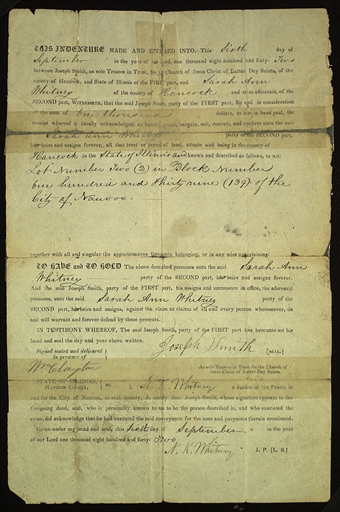 THIS INDENTURE MADE AND ENTERED INTO. This Sixth day of
September in the year of our Lord, one thousand eight hundred and forty-Two
between Joseph Smith, as sole Trustee in Trust, for the Church of Jesus Christ of Latter Day Saints, of the
county of Hancock, and State of Illinois of the FIRST part, and Sarah Ann
Whitney of the county of Hancock and state aforesaid, of the
SECOND part, WITNESSETH, that the said Joseph Smith, party of the FIRST part, for and in consideration
of the sum of One thousand dollars, to him in hand paid, the
receipt whereof is hereby acknowledged, do hereby grant, bargain, sell, convey, and confirm unto the said
Sarah Ann Whitney party of the SECOND part,
her heirs and assigns forever, all that tract or parcel of land, situate and being in county of
Hancock in the State of Illinois and known and described as follows, to wit:
Lot Number Two (2) in Block Number
One hundred and thirty nine (139) of the
City of Nauvoo.
together with all and singular the appurtenances thereunto belonging, or in any wise appertaining:
TO HAVE and TO HOLD The above described premises unto the said Sarah Ann
Whitney party of the SECOND part, her heirs and assigns forever.
And the said Joseph Smith, party of the FIRST part, his assigns and successors in office, the aforesaid
premises, unto the said Sarah Ann Whitney party of the
SECOND part, her heirs and assigns, against the claim or claims of all and every person whomsoever, do
and will warrant and forever defend by these presents.
IN TESTIMONY WHEREOF, The said Joseph Smith, party of the FIRST part has hereunto set his
hand and seal the day and year above written.
Signed sealed and delivered
in presence of
Joseph Smith [SEAL]
Wm Clayton
Trustee in Trust for the Church of
Jesus Christ of Latter Day Saints.
STATE OF ILLINOIS,
HANCOCK COUNTY,
I, N. K. Whitney a Justice of the Peace, in
and for the City of Nauvoo, in said county, do certify that Joseph Smith, whose signature appears to the
foregoing deed, and, who is personally known to me to be the person described in, and who executed the
same, did acknowledge that he had executed the said conveyance for the uses and purposes therein mentioned.
Given under my hand and seal, this Sixth day of September in the year
of our Lord one thousand eight hundred and forty-Two
N. K. Whitney J. P. [L. S.]